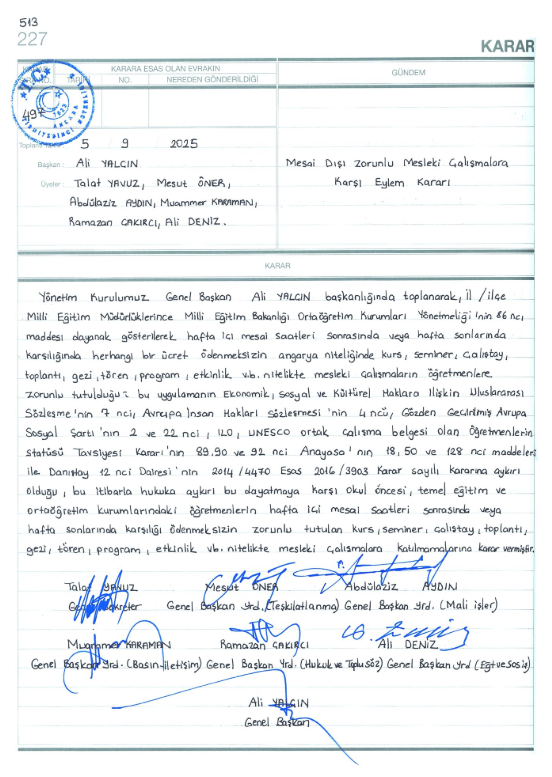 513
227
KARAR
KARARA ESAS OLAN EVRAKIN
GÜNDEM
TARİHİ NO. NEREDEN GÖNDERİLDİĞİ
T.C.
497
5 9 2025
Başkan: Ali YALÇIN
Üyeler: Talat YAVUZ, Mesut ÖNER,
Abdülaziz AYDIN, Muammer KARAMAN,
Ramazan ÇAKIRCI, Ali DENİZ.
Mesai Dışı Zorunlu Mesleki Çalışmalara
Karşı Eylem Kararı
KARAR
Yönetim Kurulumuz Genel Başkan Ali YALÇIN başkanlığında toplanarak, il / ilçe
Milli Eğitim Müdürlüklerince Milli Eğitim Bakanlığı Ortaöğretim Kurumları Yönetmeliği'nin 86 ncı
maddesi dayanak gösterilerek hafta içi mesai saatleri sonrasında veya hafta sonlarında
karşılığında herhangi bir ücret ödenmeksizin angarya niteliğinde kurs, seminer, çalıştay,
toplantı, gezi, tören, program, etkinlik vb. nitelikte mesleki çalışmaların öğretmenlere
zorunlu tutulduğu; bu uygulamanın Ekonomik, Sosyal ve Kültürel Haklara İlişkin Uluslararası
Sözleşme'nin 7 nci, Avrupa İnsan Hakları Sözleşmesi'nin 4 ncü, Gözden Geçirilmiş Avrupa
Sosyal Şartı'nın 2 ve 22 nci, ILO, UNESCO ortak çalışma belgesi olan Öğretmenlerin
Statüsü Tavsiyesi Kararı'nın 89,90 ve 92 nci Anayasa'nın 18, 50 ve 128 nci maddeleri
ile Danıştay 12 nci Dairesi'nin 2014/4470 Esas 2016/3903 Karar sayılı kararına aykırı
olduğu, bu itibarla hukuka aykırı bu dayatmaya karşı okul öncesi, temel eğitim ve
ortaöğretim kurumlarındaki öğretmenlerin hafta içi mesai saatleri sonrasında veya
hafta sonlarında karşılığı ödenmeksizin zorunlu tutulan kurs, seminer, çalıştay, toplantı,
gezi, tören, program, etkinlik vb. nitelikte mesleki çalışmalara katılmamalarına karar vermiştir.
Talat YAVUZ Mesut ÖNER Abdülaziz AYDIN
Genel Sekreter Genel Başkan Yrd. (Teşkilatlanma) Genel Başkan Yrd. (Mali işler)
Muammer KARAMAN Ramazan ÇAKIRCI Ali DENİZ
Genel Başkan Yrd. (Basın-İletişim) Genel Başkan Yrd. (Hukuk ve Toplu Söz) Genel Başkan Yrd (Eğt ve Sosiş)
Ali YALÇIN
Genel Başkan
KARAR